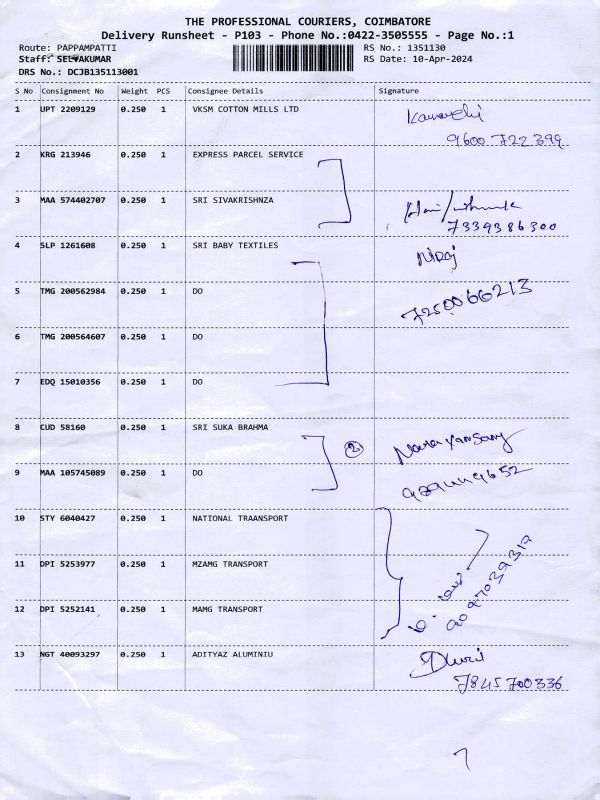 THE PROFESSIONAL COURIERS, COIMBATORE
Delivery Runsheet - P103 - Phone No.:0422-3505555 - Page No.:1
Route: PAPPAMPATTI RS No.: 1351130
Staff: SELVAKUMAR RS Date: 10-Apr-2024
DRS No.: DCJB135113001
S No Consignment No Weight PCS Consignee Details Signature
1 UPT 2209129 0.250 1 VKSM COTTON MILLS LTD
9600 722 399
2 KRG 213946 0.250 1 EXPRESS PARCEL SERVICE
3 MAA 574402707 0.250 1 SRI SIVAKRISHNZA
7339386300
4 SLP 1261608 0.250 1 SRI BABY TEXTILES
Niroj
5 TMG 200562984 0.250 1 DO 7250066213
6 TMG 200564607 0.250 1 DO
7 EDQ 15010356 0.250 1 DO
8 CUD 58160 0.250 1 SRI SUKA BRAHMA
2 Narayansamy
9 MAA 105745089 0.250 1 DO
10 STY 6040427 0.250 1 NATIONAL TRAANSPORT
11 DPI 5253977 0.250 1 MZAMG TRANSPORT
12 DPI 5252141 0.250 1 MAMG TRANSPORT
13 NGT 40093297 0.250 1 ADITYAZ ALUMINIU
7845700336